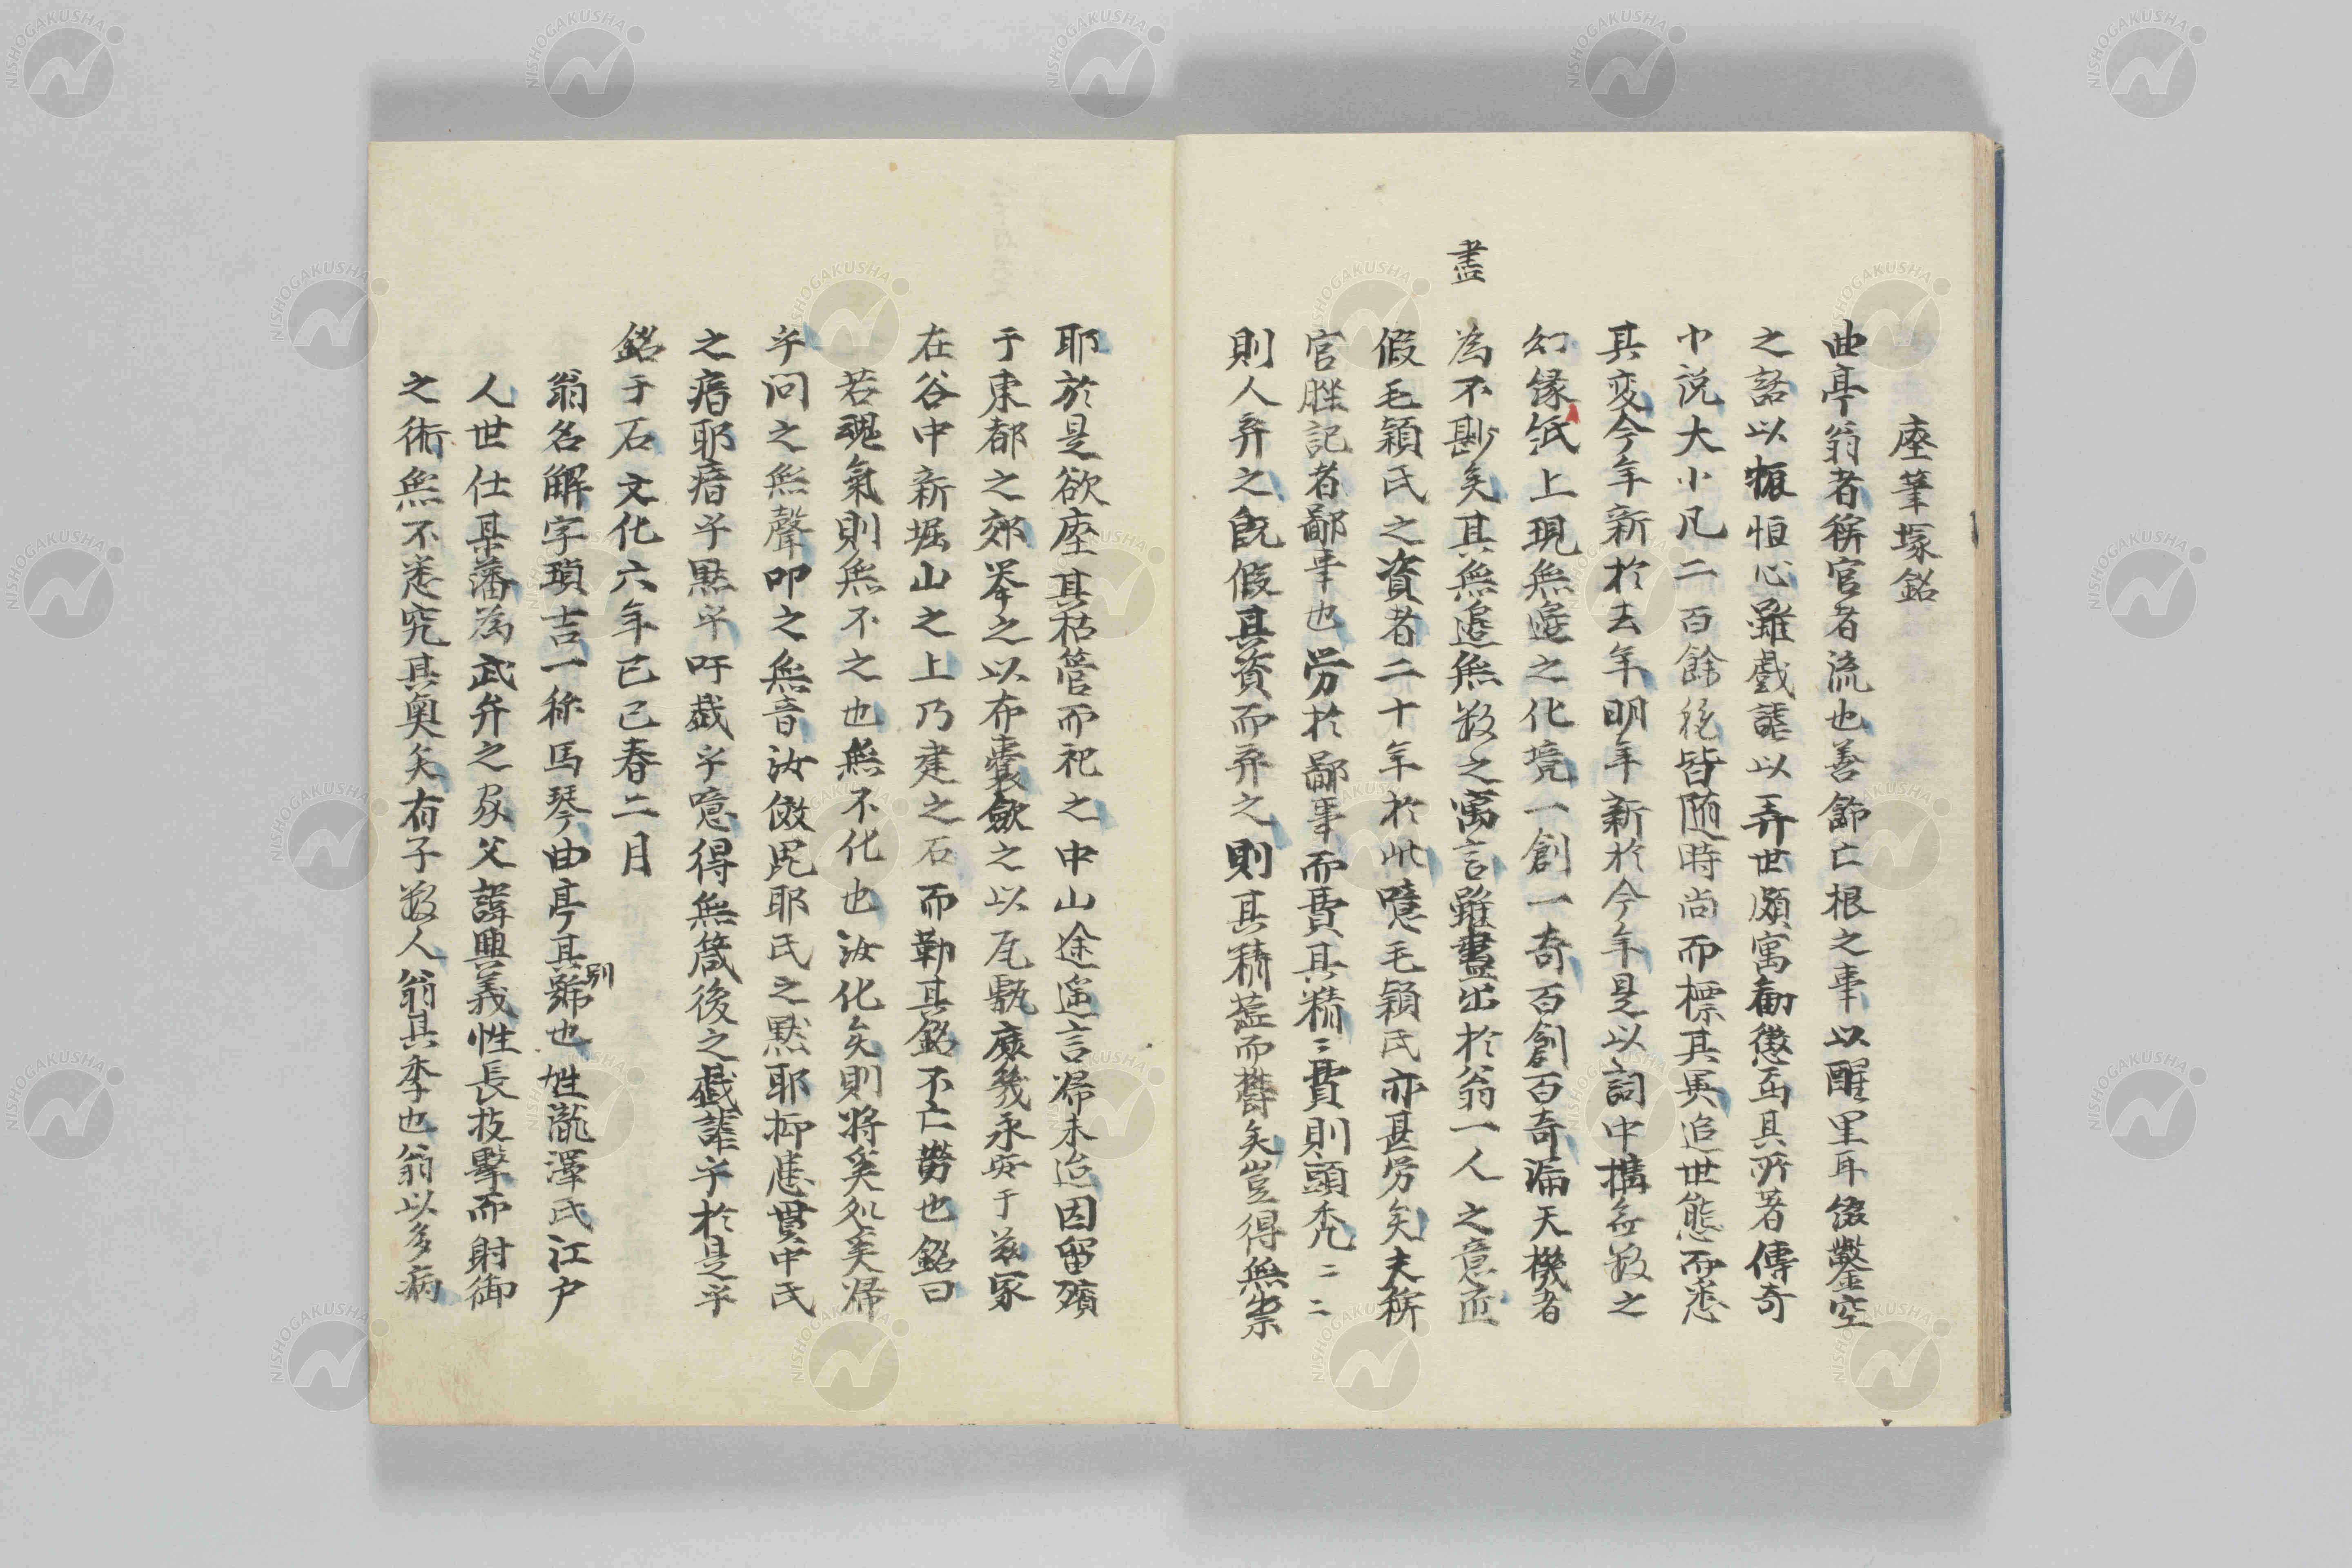 座筆塚銘
曲亭翁者稗官者流也善飾亡根之事以醒里耳綴鑿空
之話以振恒心雖戯謔以弄世頗寓勸懲焉其所著傳奇
中説大小凡二百餘種皆随時尚而標其異追世態而悉
其変今年新於去年明年新於今年是以詞中搆無数之
幻縁紙上現無邊之化境一創一奇百創百奇漏天機者
盡
為不尠矣其無邊無数之寓言雖盡出於翁一人之意匠
假毛穎氏之資者二十年於此噫毛穎氏亦甚労矣夫稗
官脞記者鄙事也労於鄙事而費其精〻費則頭禿〻〻
則人弃之既假其資而弃之則其積薀而欝矣豈得無祟
耶於是欲座其枯管而祀之中山途遥言帰未迨因留殯
于東都之郊挙之以布嚢歛之以瓦甎庶幾永安于茲冢
在谷中新堀山之上乃建之石而勒其銘不亡勞也銘曰
若魂氣則無不之也無不化也汝化矣則将奚処奚帰
乎问之無聲叩之無音汝倣毘耶氏之黙耶抑慝貫中氏
之瘖耶瘖乎黙乎吁戯乎噫得無箴後之戯謔乎於是乎
銘于石文化六年己巳春二月
翁名解字瑣吉一称馬琴曲亭其別號也姓瀧澤氏江户
人世仕某藩為武弁之家父諱興義性長技擊而射御
之術無不悉究其奥矣有子数人翁其季也翁以多病